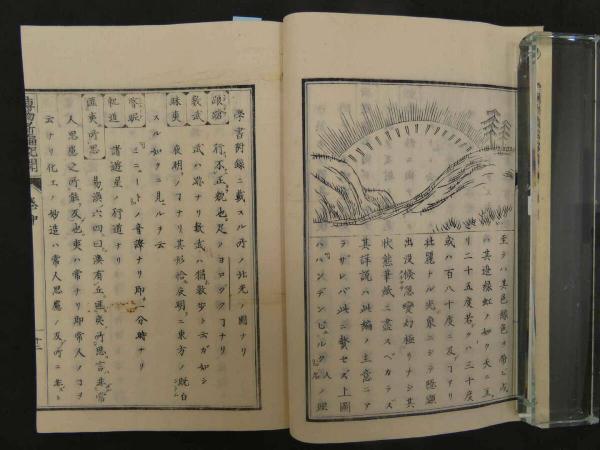 至テハ其色緑色ヲ帶ヒ或
ハ其邊緣虹ノ如ク天ニ亙
リ二十五度若クハ三十度
或ハ百八十度ニ及フコアリ
壯麗ナル光象ニシテ隱顯
出沒倏忽變幻極リナシ其
狀態筆紙ニ盡スベカラズ
其詳說ハ此編ノ主意ニア
ラザレバ此ニ贅セズ上圖
ハハンデンビルク人ノ理
學書附錄ニ載スル所ノ北光ノ圖ナリ
踉蹌 行不正貌也足ヒヨロツクコナリ
數武 武ハ跡ナリ數武ハ猶數步ト云ガ如シ
昧爽 夜明ノコナリ其形恰モ夜明ニ東方ノ既白
スル如クニ見ルヲ云
ミニートノ音譯ナリ即一分時ナリ
軌道 諸遊星ノ行道ナリ
匪夷所思 易渙六四曰渙有丘匪夷所思言非常
人思慮之所能及也夷ハ常ナリ即常人ノコヲ
云ナリ化工ノ妙造ハ常人思慮ノ及所ニ非ズ
博物新編記聞